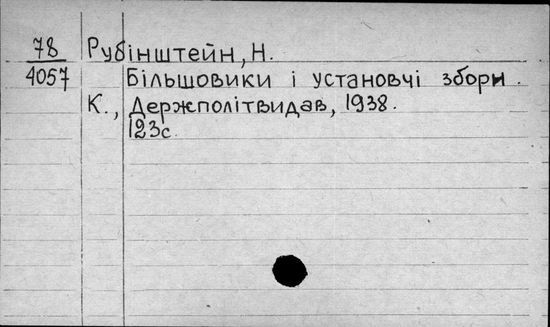 78 Рубінштейн, Н.
4057 Більшовики і установчі збори.
К., Держполітвидав, 1938.
123с.